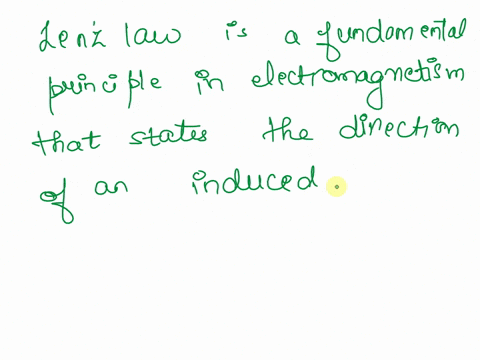 Lenz law is a fundamental
principle in electromagnetism
that states the direction
of an induced